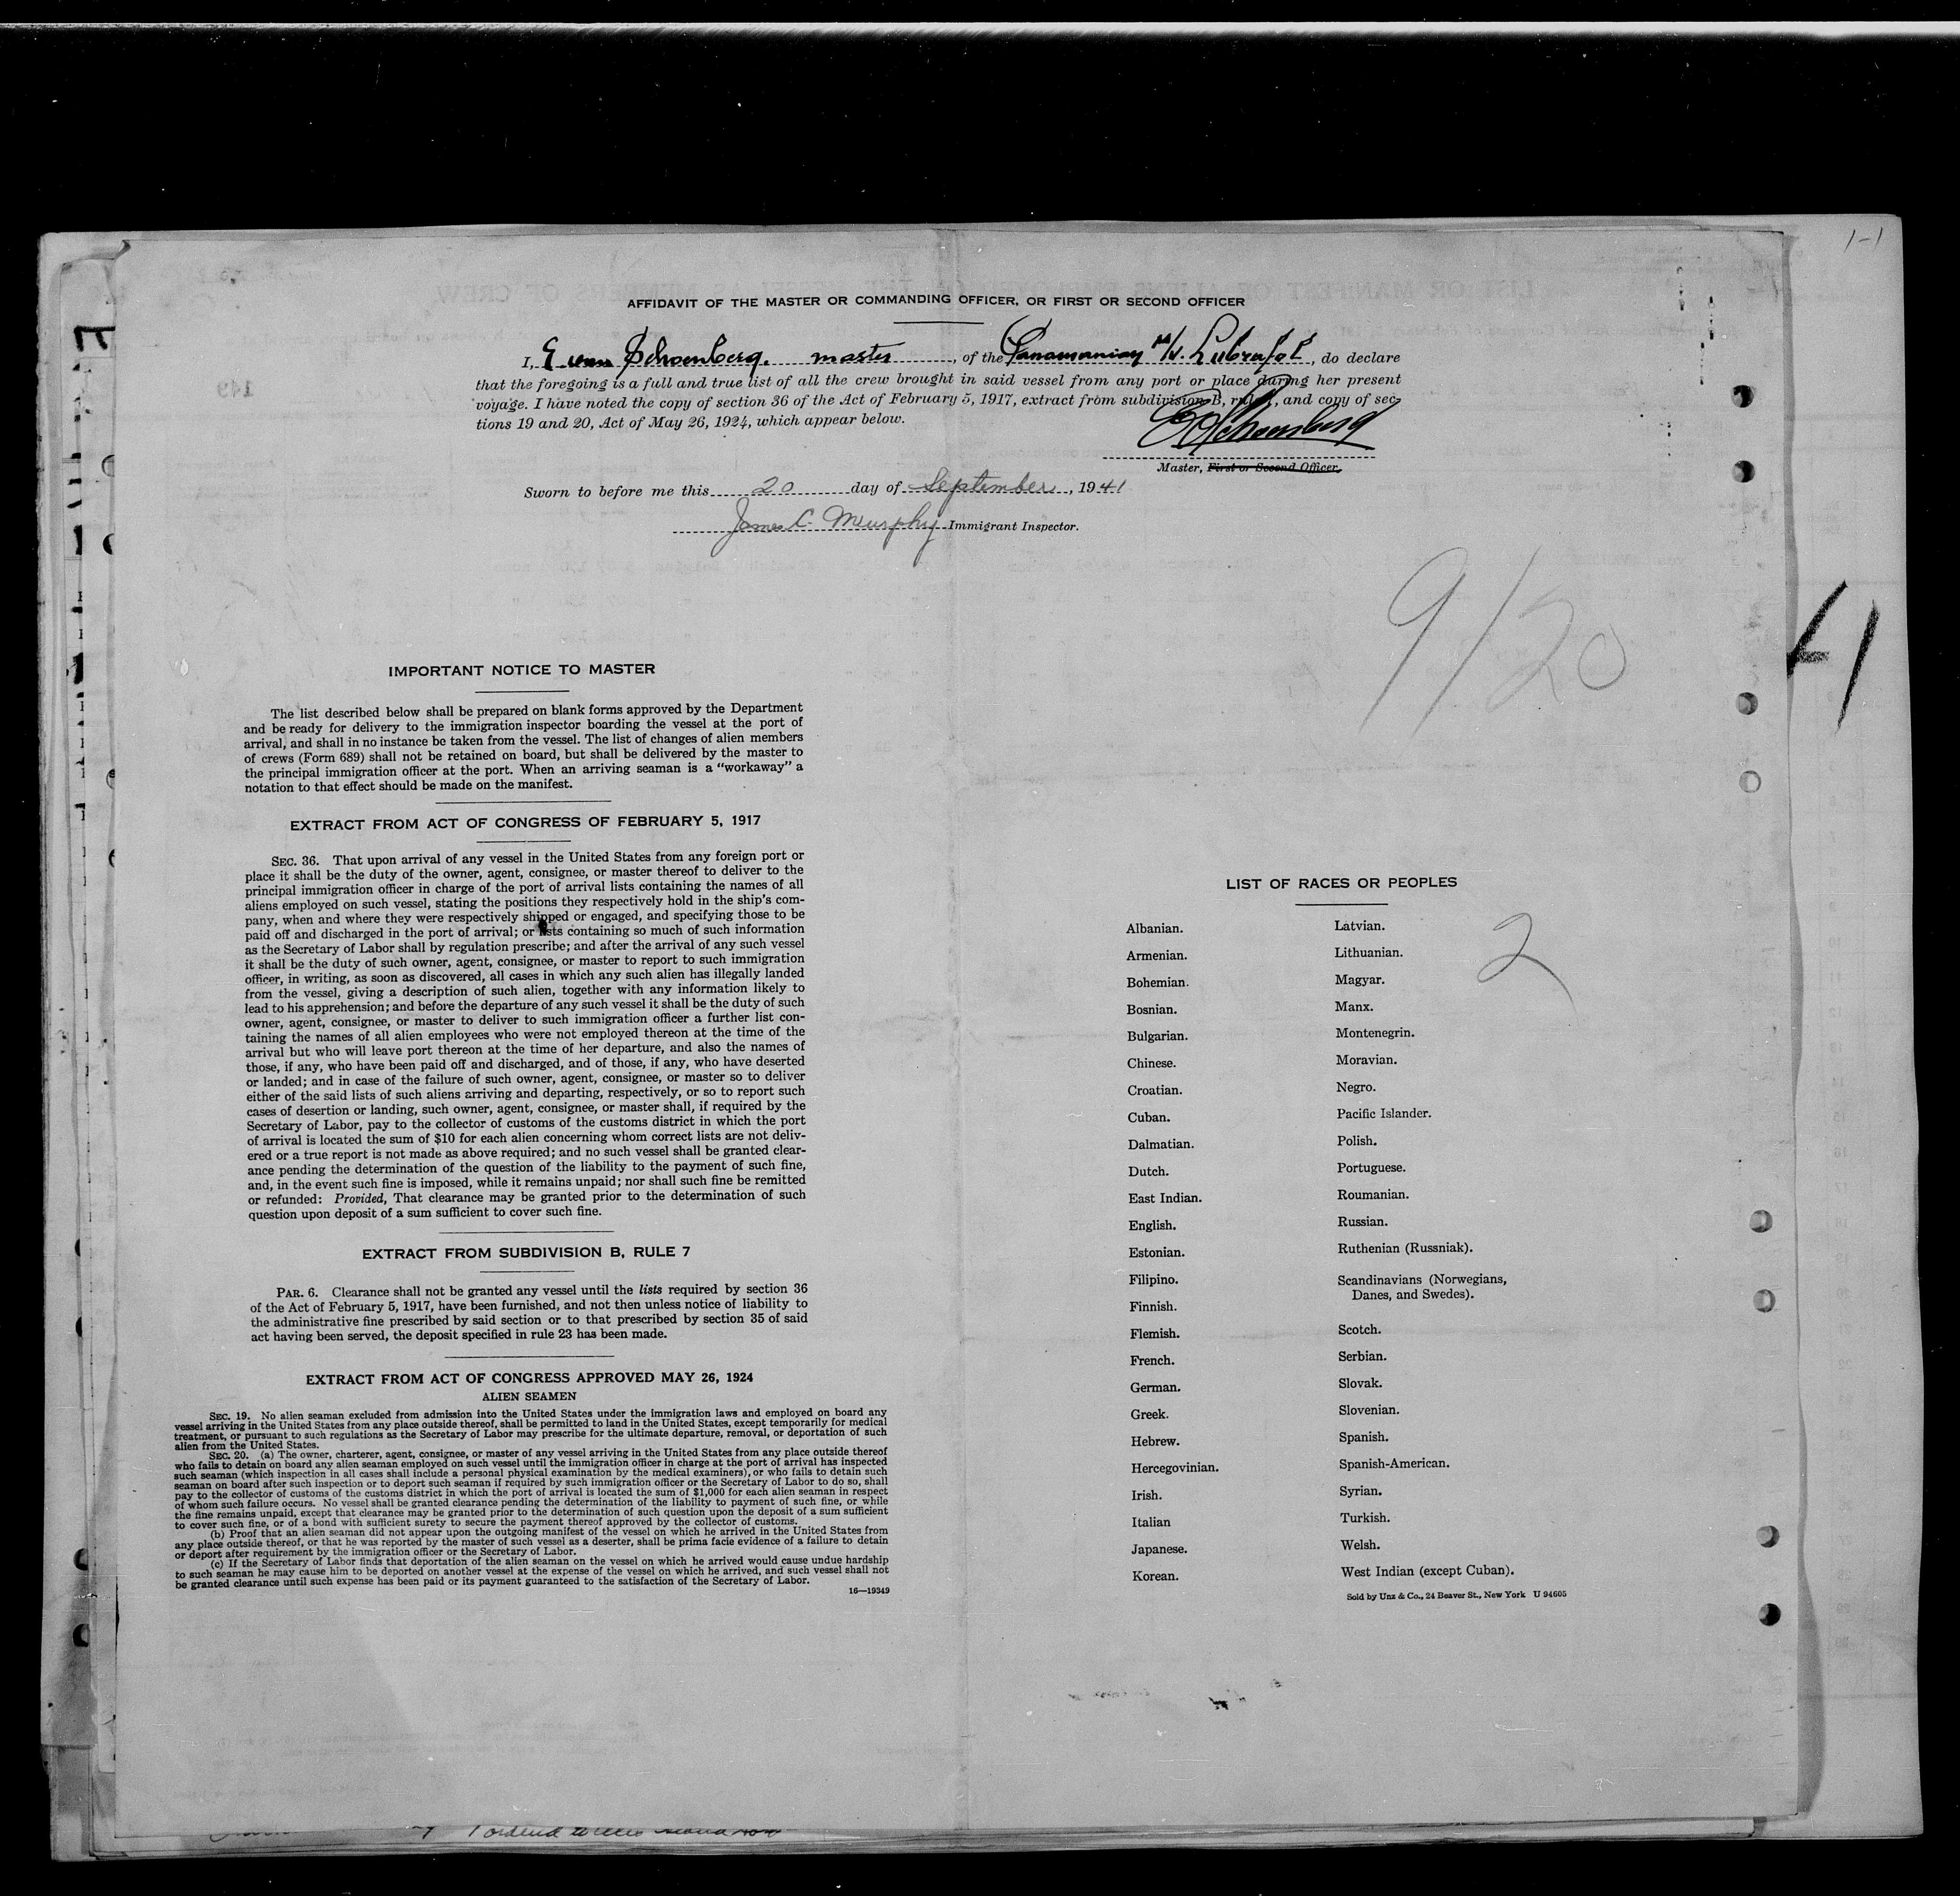 1-1
AFFIDAVIT OF THE MASTER OR COMMANDING OFFICER, OR FIRST OR SECOND OFFICER
I, E van Schoenberg. master, of the Panamanian M/V. Lubrafol, do declare
that the foregoing is a full and true list of all the crew brought in said vessel from any port or place during her present
voyage. I have noted the copy of section 36 of the Act of February 5, 1917, extract from subdivision B, rule, and copy of sec-
tions 19 and 20, Act of May 26, 1924, which appear below.
Master, First or Second Officer.
Sworn to before me this 20 day of September, 1941
James C. Murphy Immigrant Inspector.
9/20
IMPORTANT NOTICE TO MASTER
The list described below shall be prepared on blank forms approved by the Department
and be ready for delivery to the immigration inspector boarding the vessel at the port of
arrival, and shall in no instance be taken from the vessel. The list of changes of alien members
of crews (Form 689) shall not be retained on board, but shall be delivered by the master to
the principal immigration officer at the port. When an arriving seaman is a "workaway" a
notation to that effect should be made on the manifest.
EXTRACT FROM ACT OF CONGRESS OF FEBRUARY 5, 1917
SEC. 36. That upon arrival of any vessel in the United States from any foreign port or
place it shall be the duty of the owner, agent, consignee, or master thereof to deliver to the
principal immigration officer in charge of the port of arrival lists containing the names of all
aliens employed on such vessel, stating the positions they respectively hold in the ship's com-
pany, when and where they were respectively shipped or engaged, and specifying those to be
paid off and discharged in the port of arrival; or lists containing so much of such information
as the Secretary of Labor shall by regulation prescribe; and after the arrival of any such vessel
it shall be the duty of such owner, agent, consignee, or master to report to such immigration
officer, in writing, as soon as discovered, all cases in which any such alien has illegally landed
from the vessel, giving a description of such alien, together with any information likely to
lead to his apprehension; and before the departure of any such vessel it shall be the duty of such
owner, agent, consignee, or master to deliver to such immigration officer a further list con-
taining the names of all alien employees who were not employed thereon at the time of the
arrival but who will leave port thereon at the time of her departure, and also the names of
those, if any, who have been paid off and discharged, and of those, if any, who have deserted
or landed; and in case of the failure of such owner, agent, consignee, or master so to deliver
either of the said lists of such aliens arriving and departing, respectively, or so to report such
cases of desertion or landing, such owner, agent, consignee, or master shall, if required by the
Secretary of Labor, pay to the collector of customs of the customs district in which the port
of arrival is located the sum of $10 for each alien concerning whom correct lists are not deliv-
ered or a true report is not made as above required; and no such vessel shall be granted clear-
ance pending the determination of the question of the liability to the payment of such fine,
and, in the event such fine is imposed, while it remains unpaid; nor shall such fine be remitted
or refunded: Provided, That clearance may be granted prior to the determination of such
question upon deposit of a sum sufficient to cover such fine.
EXTRACT FROM SUBDIVISION B, RULE 7
PAR. 6. Clearance shall not be granted any vessel until the lists required by section 36
of the Act of February 5, 1917, have been furnished, and not then unless notice of liability to
the administrative fine prescribed by said section or to that prescribed by section 35 of said
act having been served, the deposit specified in rule 23 has been made.
EXTRACT FROM ACT OF CONGRESS APPROVED MAY 26, 1924
ALIEN SEAMEN
SEC. 19. No alien seaman excluded from admission into the United States under the immigration laws and employed on board any
vessel arriving in the United States from any place outside thereof, shall be permitted to land in the United States, except temporarily for medical
treatment, or pursuant to such regulations as the Secretary of Labor may prescribe for the ultimate departure, removal, or deportation of such
alien from the United States.
SEC. 20. (a) The owner, charterer, agent, consignee, or master of any vessel arriving in the United States from any place outside thereof
who fails to detain on board any alien seaman employed on such vessel until the immigration officer in charge at the port of arrival has inspected
such seaman (which inspection in all cases shall include a personal physical examination by the medical examiners), or who fails to detain such
seaman on board after such inspection or to deport such seaman if required by such immigration officer or the Secretary of Labor to do so, shall
pay to the collector of customs of the customs district in which the port of arrival is located the sum of $1,000 for each alien seaman in respect
of whom such failure occurs. No vessel shall be granted clearance pending the determination of the liability to payment of such fine, or while
the fine remains unpaid, except that clearance may be granted prior to the determination of such question upon the deposit of a sum sufficient
to cover such fine, or of a bond with sufficient surety to secure the payment thereof approved by the collector of customs.
(b) Proof that an alien seaman did not appear upon the outgoing manifest of the vessel on which he arrived in the United States from
any place outside thereof, or that he was reported by the master of such vessel as a deserter, shall be prima facie evidence of a failure to detain
or deport after requirement by the immigration officer or the Secretary of Labor.
(c) If the Secretary of Labor finds that deportation of the alien seaman on the vessel on which he arrived would cause undue hardship
to such seaman he may cause him to be deported on another vessel at the expense of the vessel on which he arrived, and such vessel shall not
be granted clearance until such expense has been paid or its payment guaranteed to the satisfaction of the Secretary of Labor.
16—19349
LIST OF RACES OR PEOPLES
2
Albanian.
Armenian.
Bohemian.
Bosnian.
Bulgarian.
Chinese.
Croatian.
Cuban.
Dalmatian.
Dutch.
East Indian.
English.
Estonian.
Filipino.
Finnish.
Flemish.
French.
German.
Greek.
Hebrew.
Hercegovinian.
Irish.
Italian
Japanese.
Korean.
Latvian.
Lithuanian.
Magyar.
Manx.
Montenegrin.
Moravian.
Negro.
Pacific Islander.
Polish.
Portuguese.
Roumanian.
Russian.
Ruthenian (Russniak).
Scandinavians (Norwegians,
Danes, and Swedes).
Scotch.
Serbian.
Slovak.
Slovenian.
Spanish.
Spanish-American.
Syrian.
Turkish.
Welsh.
West Indian (except Cuban).
Sold by Unz & Co., 24 Beaver St., New York U 94605